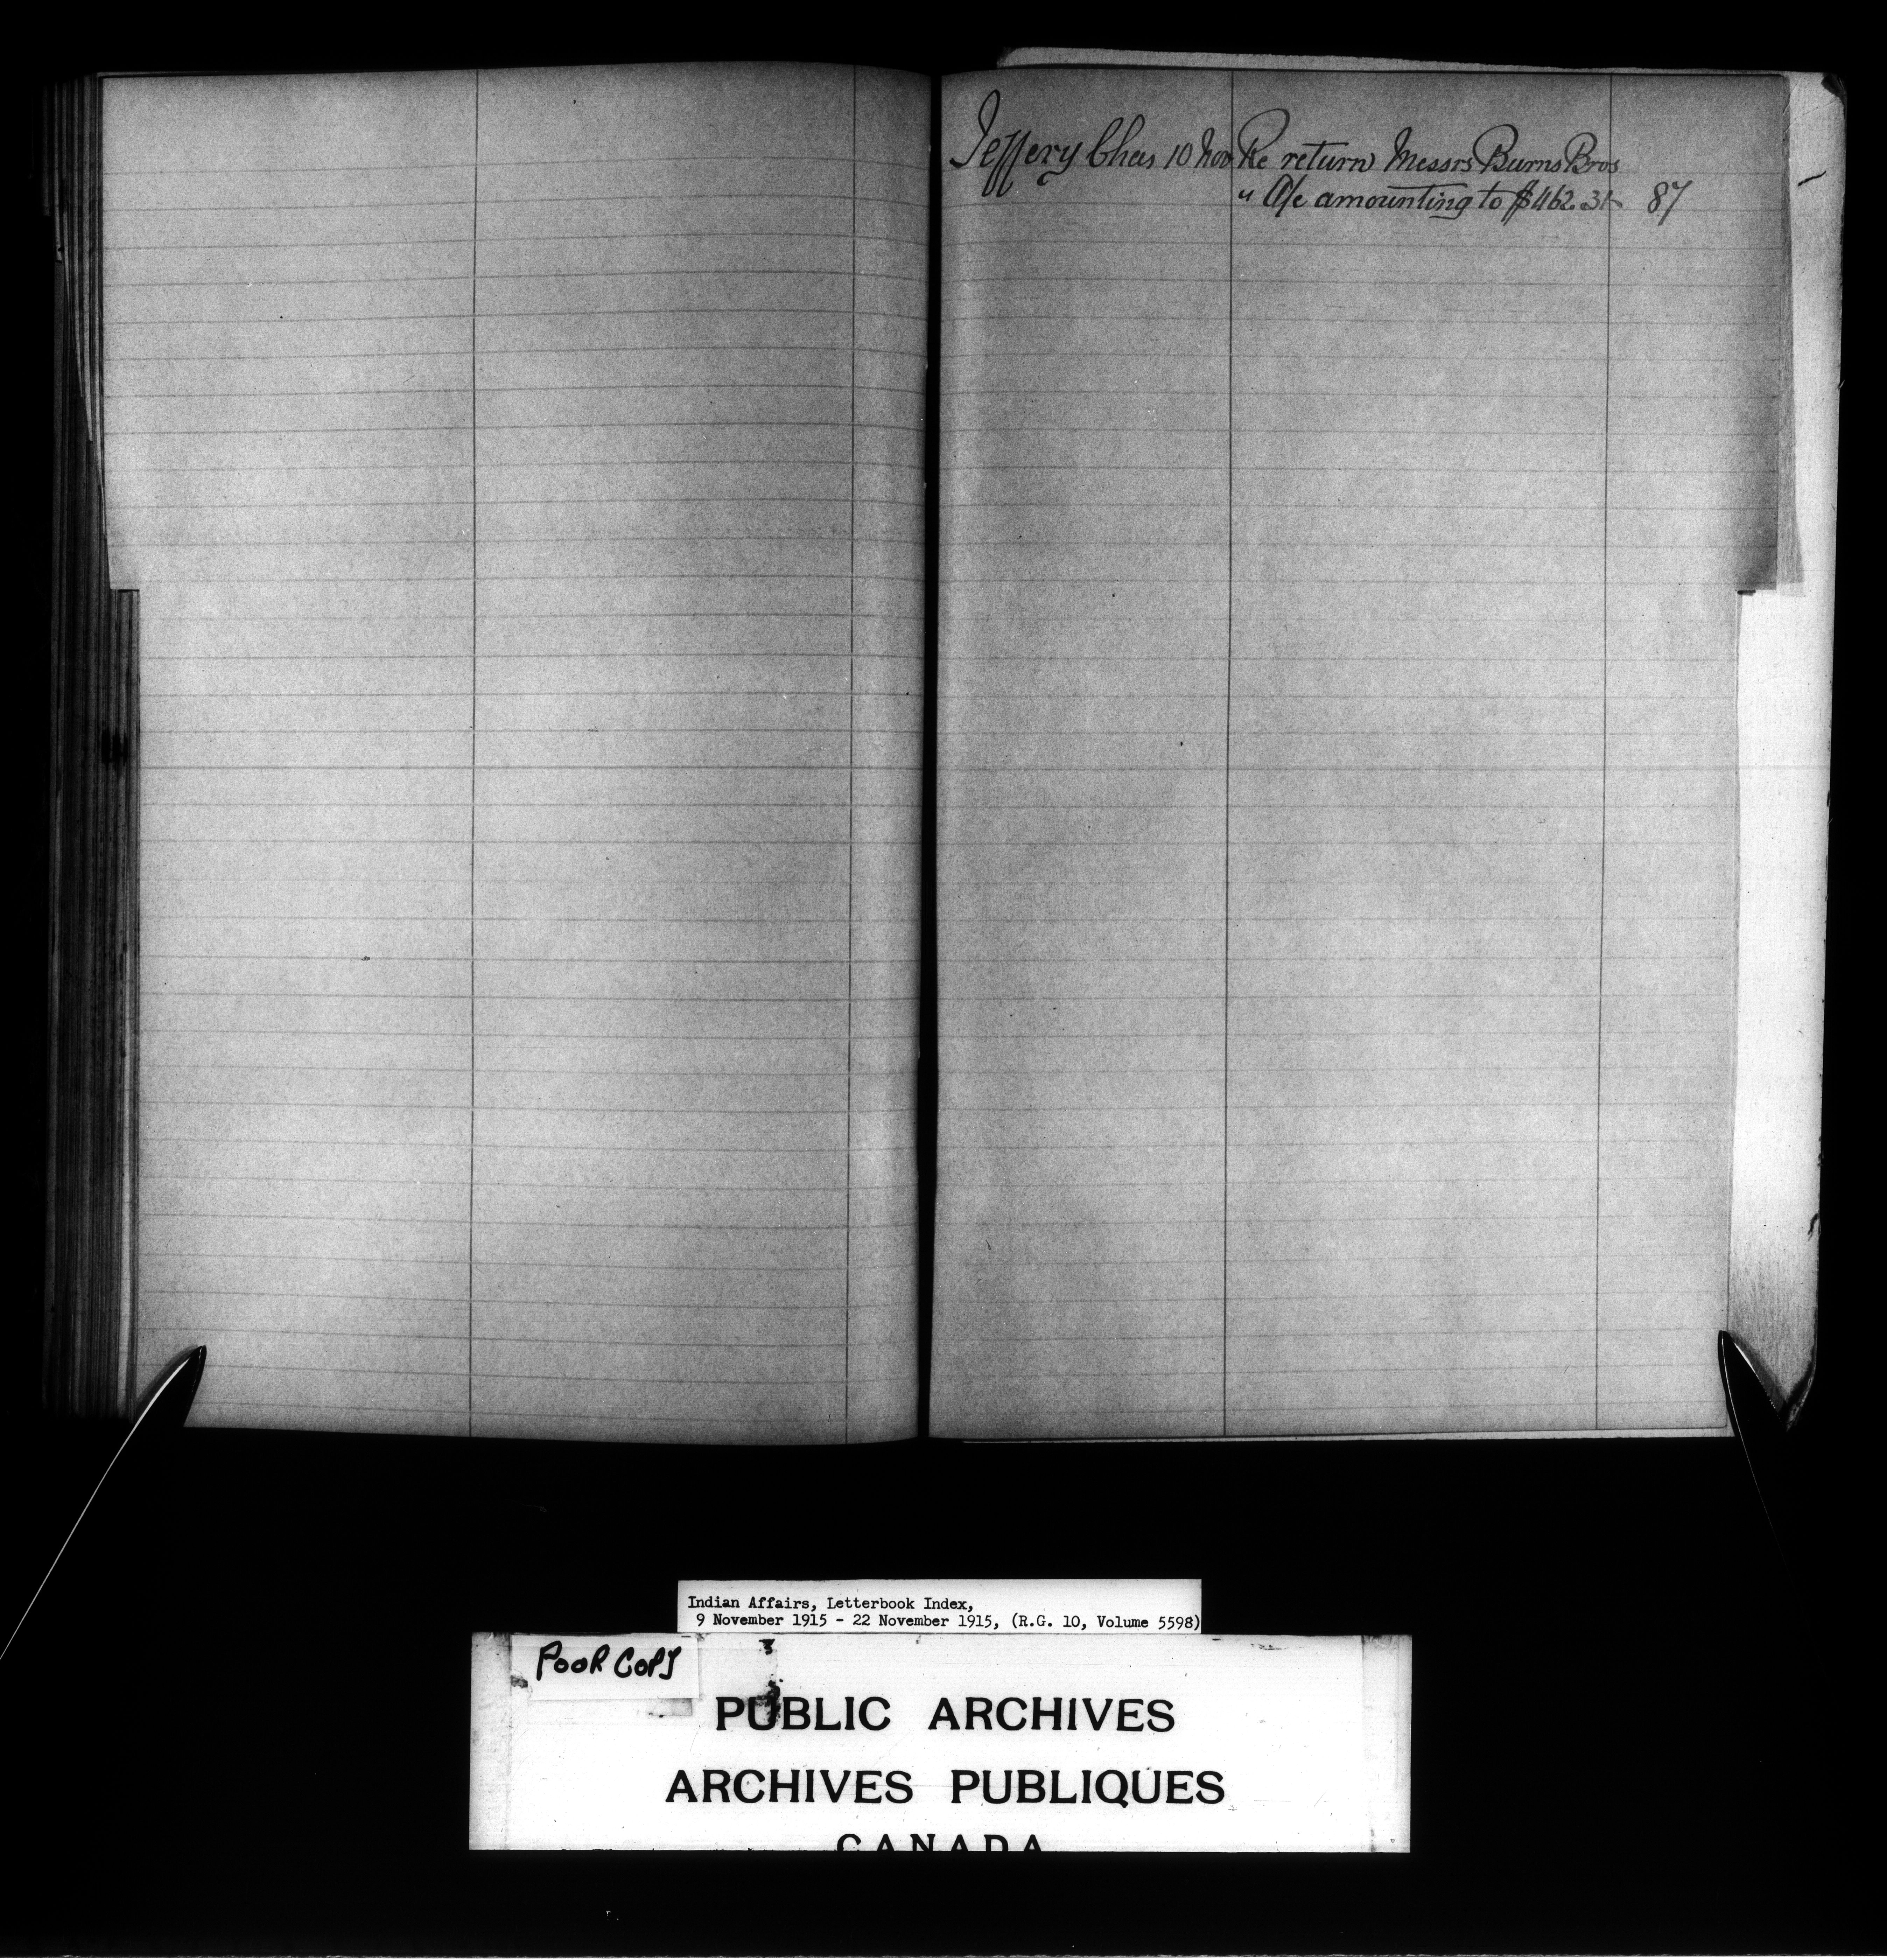 Jeffery Chas 10 Nov Re return Messrs Burns Bros
" A/c amounting to $462.31 87
Indian Affairs, Letterbook Index,
9 November 1915 - 22 November 1915, (R.G. 10, Volume 5598)
POOR COPY
PUBLIC ARCHIVES
ARCHIVES PUBLIQUES
CANADA